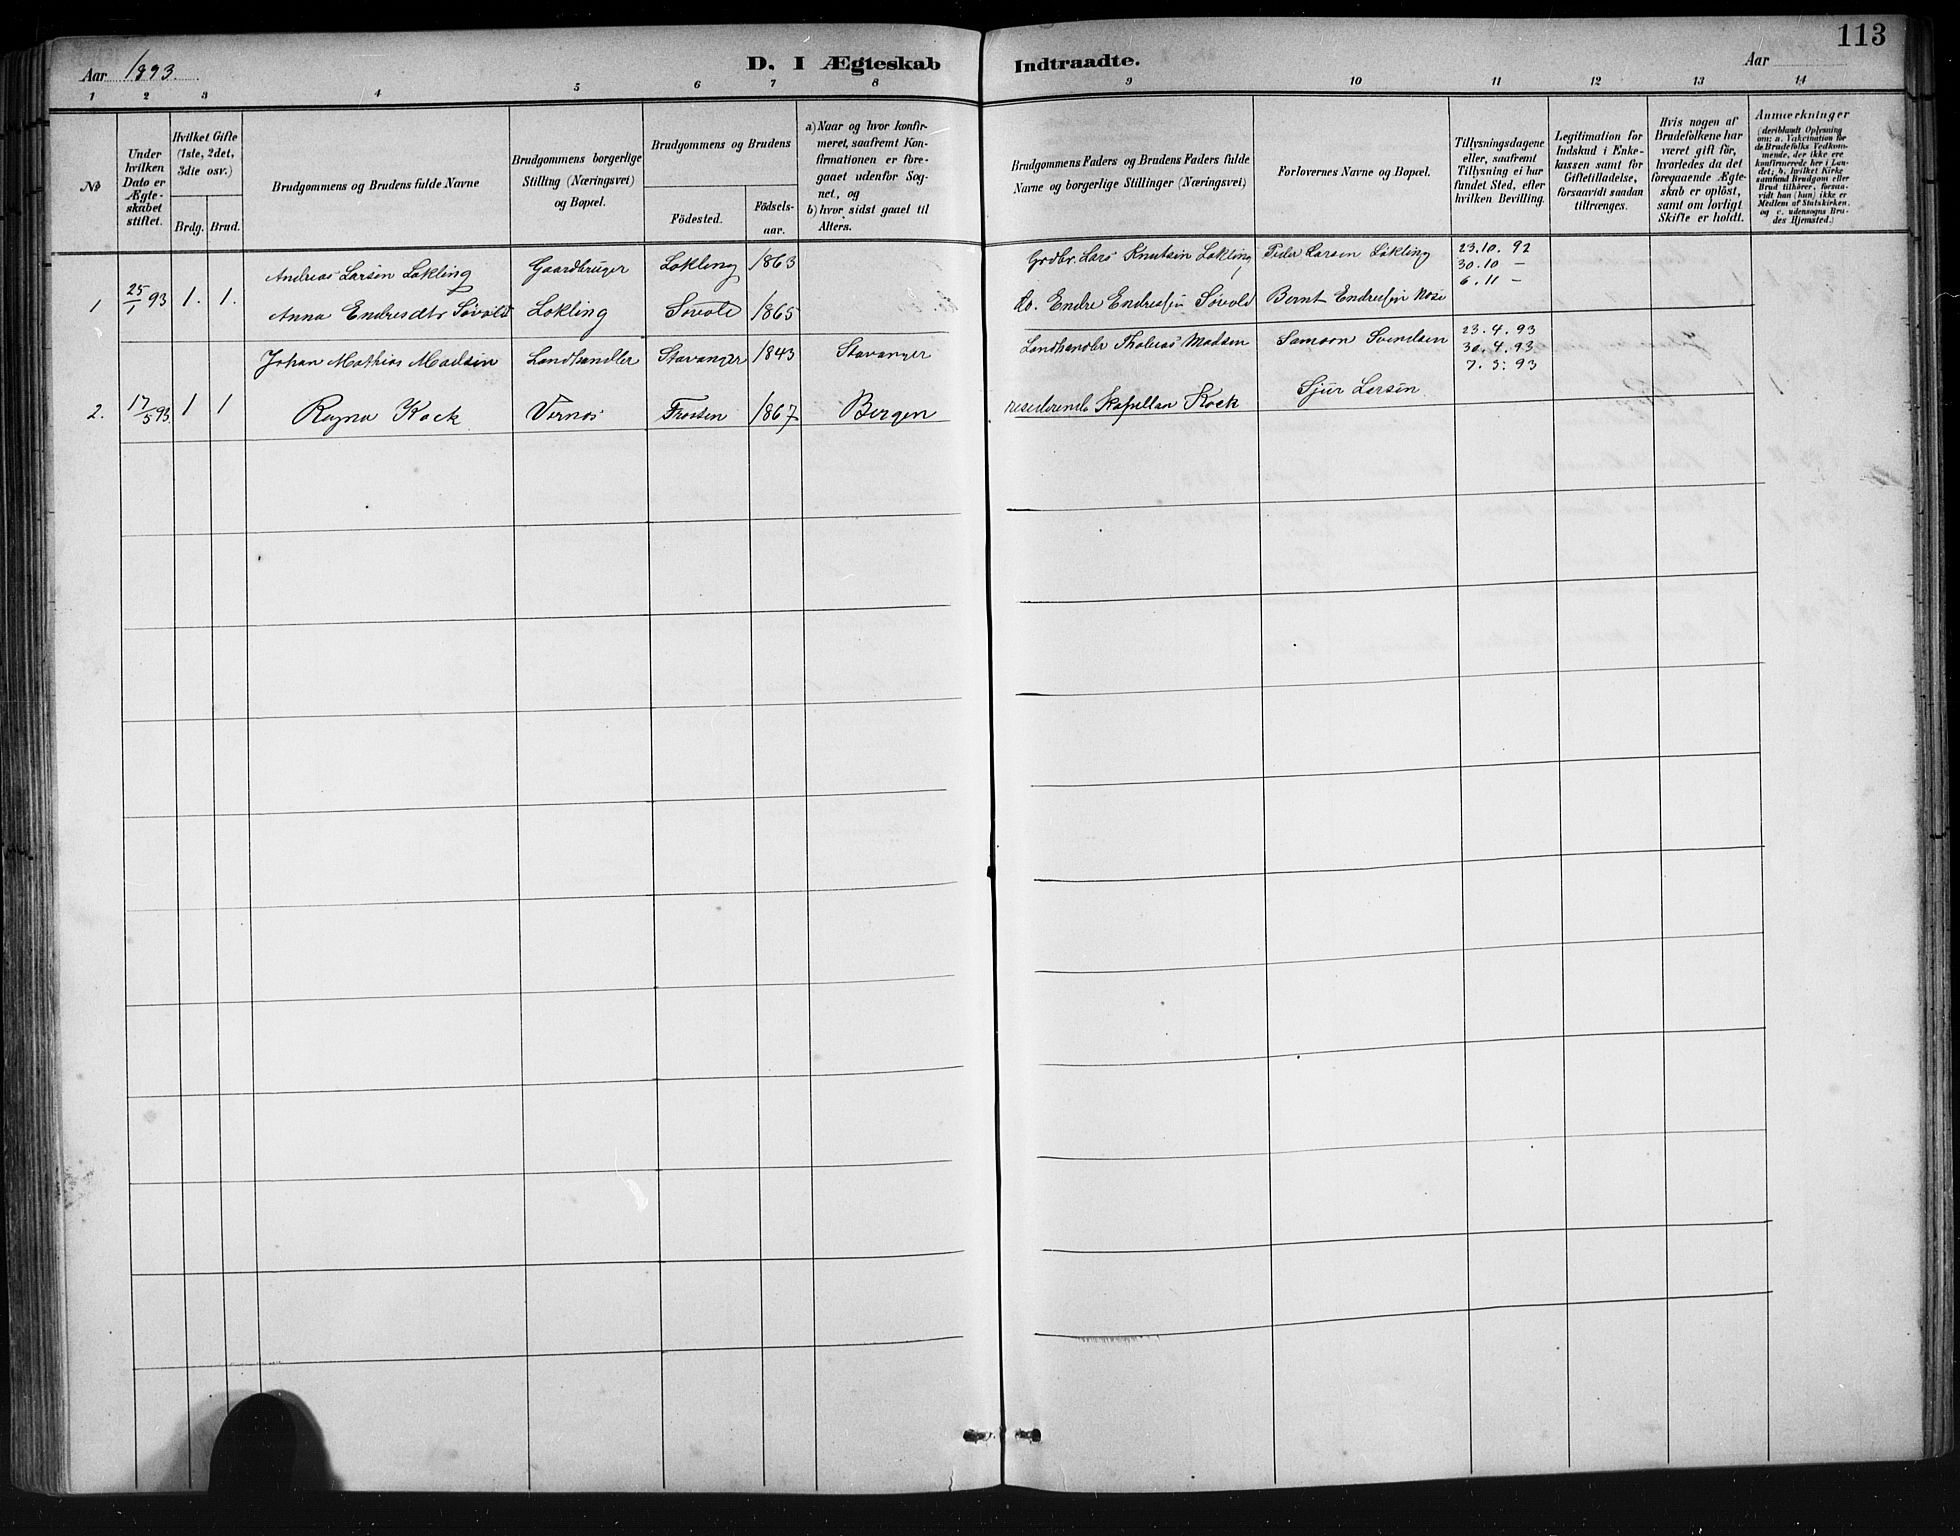 113
Aar 1893
D. I Ægteskab Indtraadte.
Aar
1 2 3 4 5 6 7 8 9 10 11 12 13 14
No
Under hvilken Dato er Ægteskabet stiftet.
Hvilket Gifte (1ste, 2det, 3die osv.)
Brdg. Brud.
Brudgommens og Brudens fulde Navne
Brudgommens borgerlige Stilling (Næringsvei) og Bopæl.
Brudgommens og Brudens
Födested.
Födsels-aar.
a) Naar og hvor konfirmeret, saafremt Konfirmationen er foregaaet udenfor Sognet, og
b) hvor sidst gaaet til Alters.
Brudgommens Faders og Brudens Faders fulde Navne og borgerlige Stillinger (Næringsvei)
Forlovernes Navne og Bopæl.
Tillysningsdagene eller, saafremt Tillysning ei har fundet Sted, efter hvilken Bevilling.
Legitimation for Indskud i Enkekassen samt for Giftetilladelse, forsaavidt saadan tiltrænges.
Hvis nogen af Brudefolkene har været gift før, hvorledes da det foregaaende Ægteskab er opløst, samt om lovligt Skifte er holdt.
Anmærkninger
(deriblandt Oplysning om: a. Vakcination for de Brudefolks Vedkommende, der ikke ere konfirmerede her i Landet; b. hvilket Kirkesamfund Brudgom eller Brud tilhører, forsaavidt han (hun) ikke er Medlem af Statskirken, og c. udensogns Brudes Hjemsted.)
1 25/1 93 1. 1.
Andreas Larsen Løkling Gaardbruger Løkling 1863 Grdbr. Lars Knutsen Løkling Peder Larsen Løkling 23.10.92
30.10 –
6.11 –
Anna Endresdtr Søvold Løkling Søvold 1865 do. Endre Endressen Søvold Bernt Endressen
Johan Mathias Madsen Landhandler Stavanger 1843 Stavanger Landhandler Madsen Samson Svendsen 23.4.93
30.4.93
7.5.93
2. 17/5 93 1 1 Ragna Kock Vernøs Frosten 1867 Bergen residerende Kapellan Kock Sjur Larsen